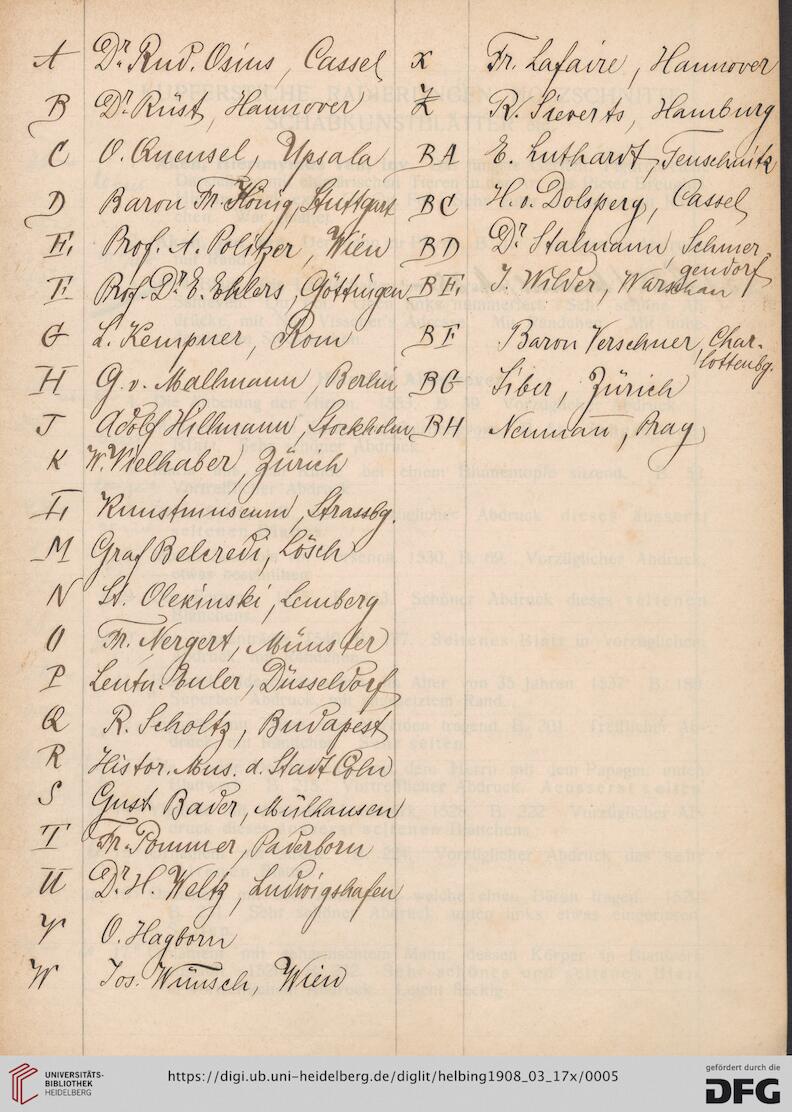 A Dr. Rud. Osius, Cassel
B Dr. Rüst, Hannover
C O. Quensel, Ypsala
D Baron Fr. König, Stuttgart
E. Prof. A. Politzer, Wien
F Prof. Dr. E. Ehlers, Göttingen
G L. Kempner, Rom
H G. v. Mallmann, Berlin
J Adolf Hillmann, Stockholm
K W. Vielhaber, Zürich
L Kunstmuseum, Strassbg.
M Graf Belcredi, Lösch
N St. Olekinski, Lemberg
O Fr. Nergert, Münster
P Leutn. Euler, Düsseldorf
Q R. Scholtz, Budapest
R Histor. Mus. d. Stadt Cöln
S Gust Bader, Mülhausen
T Fr. Pommer, Paderborn
U Dr. H. Weltz, Ludwigshafen
V O. Hagborn
W Jos. Wünsch, Wien
X Fr. Lafaire, Hannover
Z R. Sieverts, Hamburg
BA E. Luthardt, Teuschnitz
BC H. v. Dolsperg, Cassel
BD Dr. Stalmann, Schmer-
gendorf
BE. J. Wilder, Warschau
BF Baron Verschuer, Char-
lottenbg.
BG Siber, Zürich
BH Neumañ, Prag
UNIVERSITÄTS-
BIBLIOTHEK
HEIDELBERG
https://digi.ub.uni-heidelberg.de/diglit/helbing1908_03_17x/0005
gefördert durch die
DFG